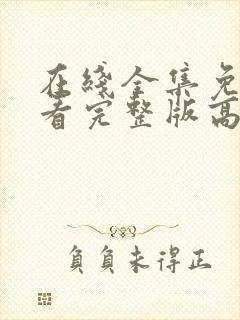 在綫全集免
看完整版高
負負未得正